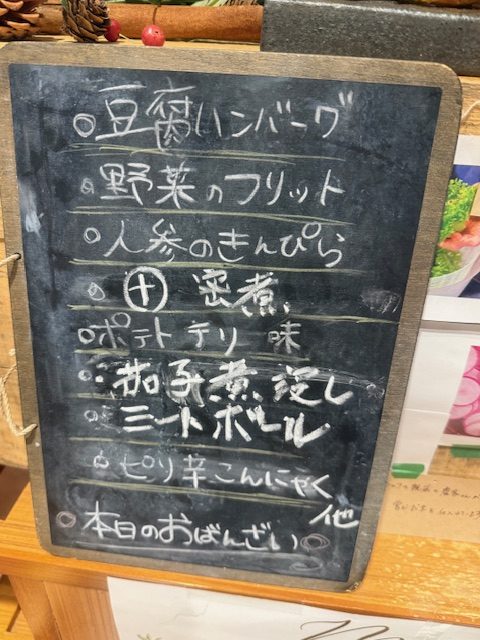 ○豆腐ハンバーグ
○野菜のフリット
○人参のきんぴら
○㊉ 密煮
○ポテトテリ味
○茄子煮浸し
ミートボール
○ピリ辛こんにゃく
他
○本日のおばんざい○